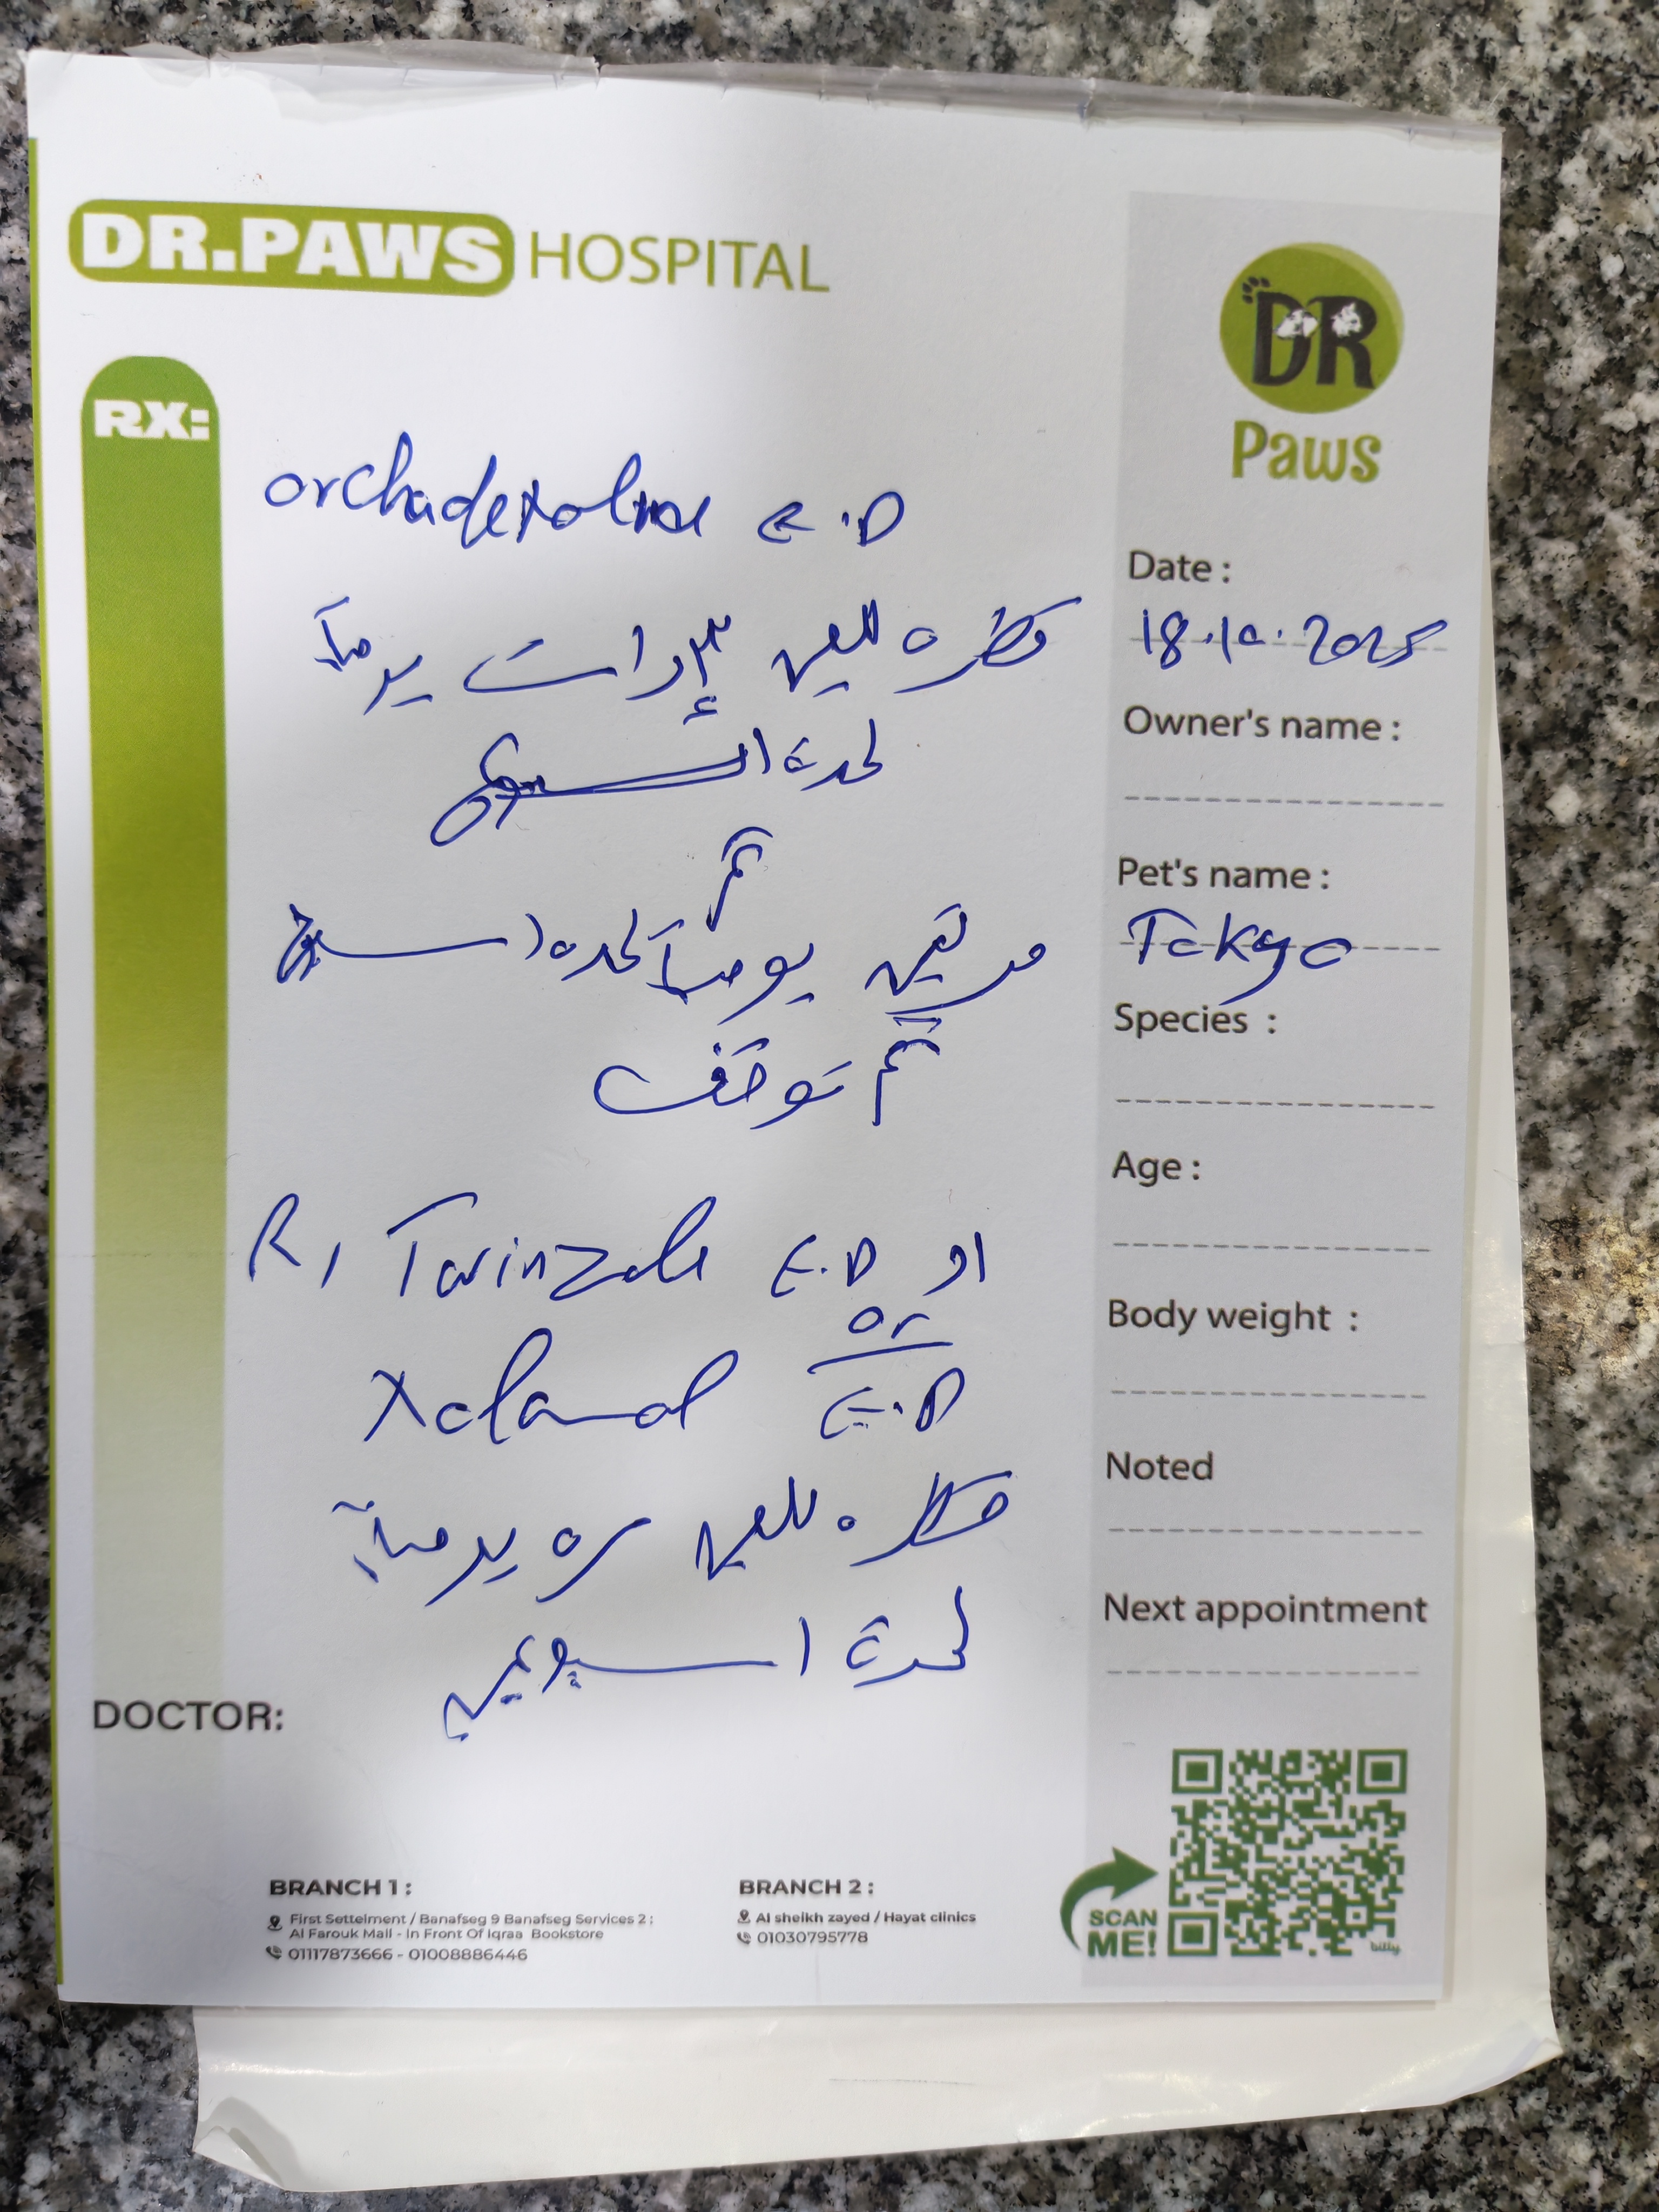 DR.PAWS HOSPITAL
DR
Paws
RX:
orchadexoline E.D
قطره للعين ٣ مرات يومياً
لمدة اسبوع
ثم
مرتين يومياً لمده اسبوع
ثم توقف
R/ Tarinzole E.D او
or
Xolamol E.D
قطره للعين مره يومياً
لمدة اسبوعين
DOCTOR:
Date :
18.10.2025
Owner's name :
Pet's name :
Tokyo
Species :
Age :
Body weight :
Noted
Next appointment
BRANCH 1 :
First Settelment / Banafseg 9 Banafseg Services 2 :
Al Farouk Mall - In Front Of Iqraa Bookstore
01117873666 - 01008886446
BRANCH 2 :
Al sheikh zayed / Hayat clinics
01030795778
SCAN
ME!
billy